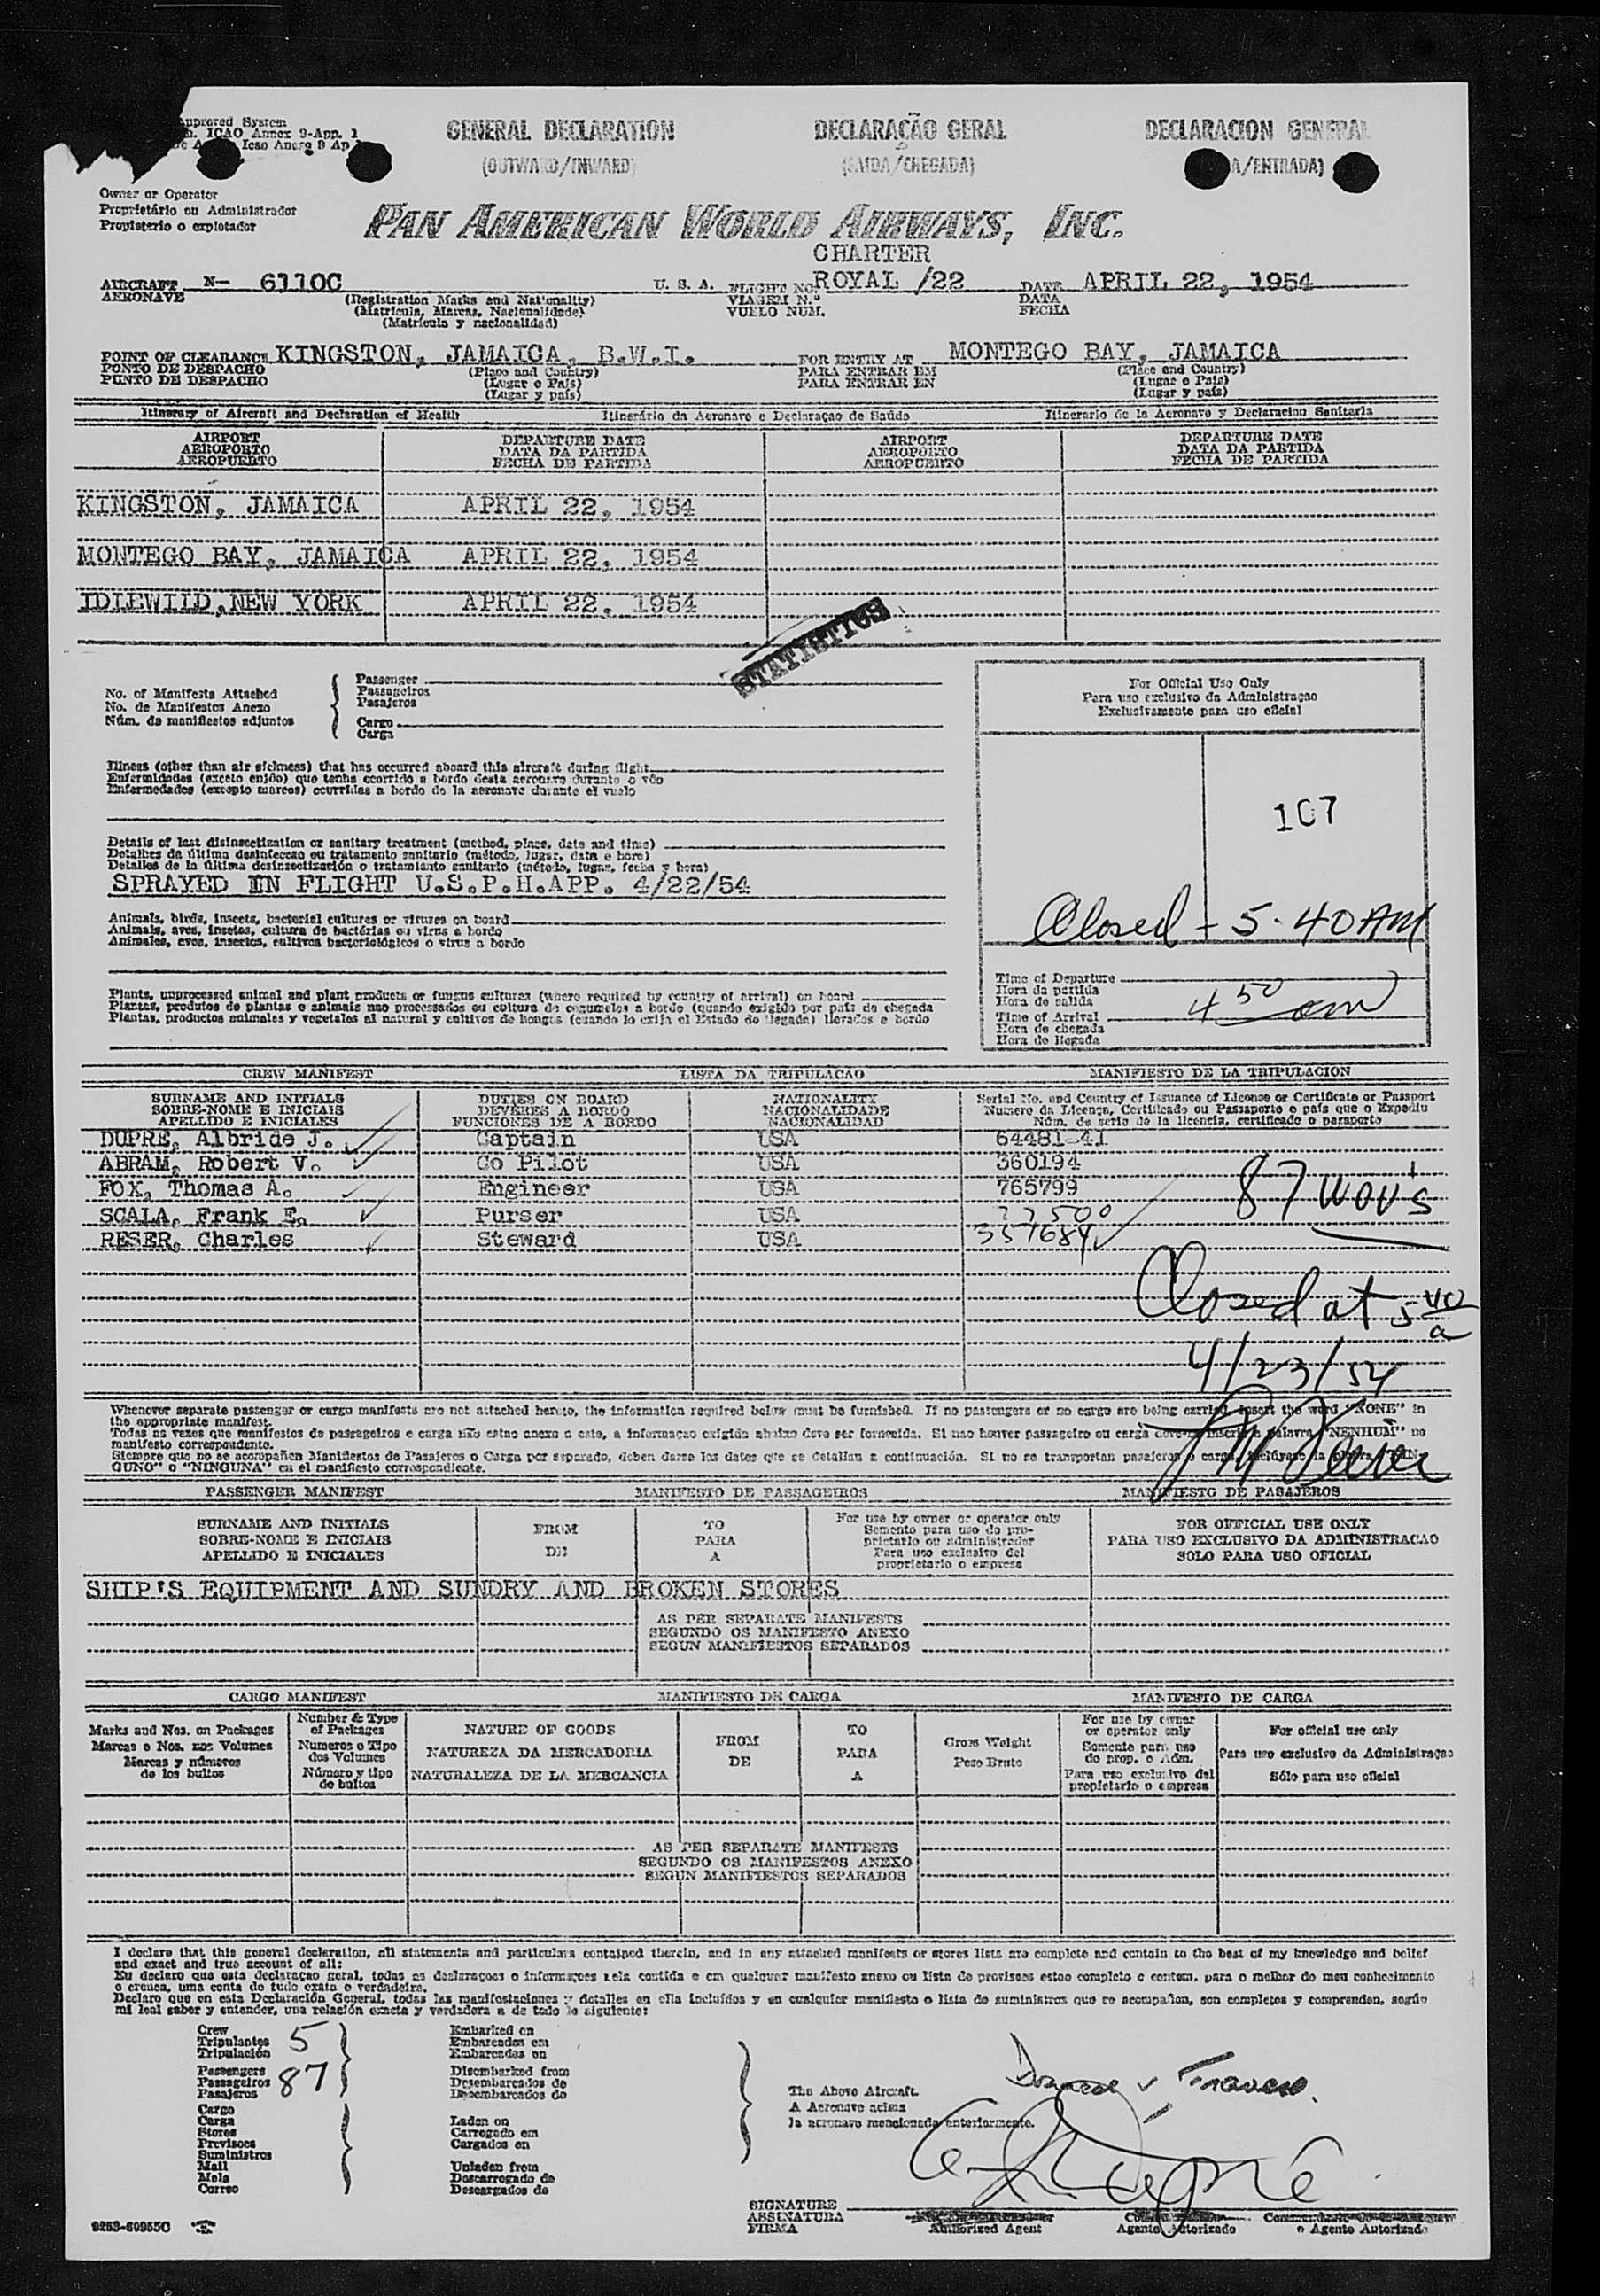 Approved System
ICAO Annex 9-App. 1
Icao Anexo 9 Ap
GENERAL DECLARATION
DECLARAÇÃO GERAL
DECLARACION GENERAL
(OUTWARD/INWARD)
(SAIDA/CHEGADA)
A/ENTRADA)
Owner or Operator
Proprietário ou Administrador
Propieterio o explotador
PAN AMERICAN WORLD AIRWAYS, INC.
CHARTER
AIRCRAFT N- 6110C U. S. A. FLIGHT NO. ROYAL /22 DATE APRIL 22, 1954
AERONAVE (Registration Marks and Nationality) VIAGEM N.º DATA
(Matricula, Marcas, Nacionalidade) VUELO NUM. FECHA
(Matrícula y nacionalidad)
POINT OF CLEARANCE KINGSTON, JAMAICA, B.W.I. FOR ENTRY AT MONTEGO BAY, JAMAICA
PONTO DE DESPACHO (Place and Country) PARA ENTRAR EM (Place and Country)
PUNTO DE DESPACHO (Lugar e País) PARA ENTRAR EN (Lugar e País)
(Lugar y país) (Lugar y país)
Itinerary of Aircraft and Declaration of Health Itinerário da Aeronave e Declaraçao de Saúde Itinerario de la Aeronave y Declaracion Sanitaria
AIRPORT DEPARTURE DATE AIRPORT DEPARTURE DATE
AEROPORTO DATA DA PARTIDA AEROPORTO DATA DA PARTIDA
AEROPUERTO FECHA DE PARTIDA AEROPUERTO FECHA DE PARTIDA
KINGSTON, JAMAICA APRIL 22, 1954
MONTEGO BAY, JAMAICA APRIL 22, 1954
IDLEWILD, NEW YORK APRIL 22, 1954
STATISTICS
No. of Manifests Attached
No. de Manifestos Anexo
Núm. de manifiestos adjuntos
Passenger
Passageiros
Pasajeros
Cargo
Carga
For Official Use Only
Para uso exclusivo da Administraçao
Exclusivamente para uso oficial
107
Closed - 5.40 AM
Illness (other than air sickness) that has occurred aboard this aircraft during flight
Enfermidades (exceto enjôo) que tenha ocorrido a bordo desta aeronave durante o vôo
Enfermedades (excepto mareos) ocurridas a bordo de la aeronave durante el vuelo
Details of last disinsectization or sanitary treatment (method, place, date and time)
Detalhes da última desinfeccao ou tratamento sanitario (método, lugar, data e hora)
Detalles de la última desinsectización o tratamiento sanitario (método, lugar, fecha y hora)
SPRAYED IN FLIGHT U.S.P.H.APP. 4/22/54
Animals, birds, insects, bacterial cultures or viruses on board
Animais, aves, insetos, cultura de bactérias ou virus a bordo
Animales, aves, insectos, cultivos bacteriológicos o virus a bordo
Plants, unprocessed animal and plant products or fungus cultures (where required by country of arrival) on board
Plantas, produtos de plantas e animais nao processados ou cultura de cogumelos a bordo (quando exigido por país de chegada
Plantas, productos animales y vegetales al natural y cultivos de hongos (cuando lo exija el Estado de llegada) llevados a bordo
Time of Departure
Hora da partida
Hora de salida
Time of Arrival 4 50 am
Hora de chegada
Hora de llegada
CREW MANIFEST LISTA DA TRIPULACAO MANIFIESTO DE LA TRIPULACION
SURNAME AND INITIALS DUTIES ON BOARD NATIONALITY Serial No. and Country of Issuance of License or Certificate or Passport
SOBRE-NOME E INICIAIS DEVERES A BORDO NACIONALIDADE Numero da Licença, Certificado ou Passaporte o país que o Expediu
APELLIDO E INICIALES FUNCIONES DE A BORDO NACIONALIDAD Núm. de serie de la licencia, certificado o pasaporte
DUPRE, Albride J. Captain USA 64481-41
ABRAM, Robert V. Co Pilot USA 360194
FOX, Thomas A. Engineer USA 765799
SCALA, Frank E. Purser USA
RESER, Charles Steward USA 357684
87 wov's
Closed at 5 40/a
4/23/54
Whenever separate passenger or cargo manifests are not attached hereto, the information required below must be furnished. If no passengers or no cargo are being carried, insert the word "NONE" in
the appropriate manifest.
Todas as vezes que manifestos de passageiros e carga não estao anexo a este, a informaçao exigida abaixo deve ser fornecida. Si nao houver passageiro ou carga deve-se inserir a palavra "NENHUM" no
manifesto correspondente.
Siempre que no se acompañen Manifiestos de Pasajeros o Carga por separado, deben darse los datos que se detallan a continuación. Si no se transportan pasajeros o carga, inclúyase la
GUNO" o "NINGUNA" en el manifiesto correspondiente.
PASSENGER MANIFEST MANIFESTO DE PASSAGEIROS MANIFIESTO DE PASAJEROS
SURNAME AND INITIALS FROM TO For use by owner or operator only FOR OFFICIAL USE ONLY
SOBRE-NOME E INICIAIS DE PARA Somente para uso do proprietario ou administrador PARA USO EXCLUSIVO DA ADMINISTRACAO
APELLIDO E INICIALES A Para uso exclusivo del propietario o empresa SOLO PARA USO OFICIAL
SHIP'S EQUIPMENT AND SUNDRY AND BROKEN STORES
AS PER SEPARATE MANIFESTS
SEGUNDO OS MANIFESTO ANEXO
SEGUN MANIFIESTOS SEPARADOS
CARGO MANIFEST MANIFIESTO DE CARGA MANIFESTO DE CARGA
Marks and Nos. on Packages
Marcas e Nos. nos Volumes
Marcas y números
de los bultos
Number & Type
of Packages
Numeros o Tipo
dos Volumes
Número y tipo
de bultos
NATURE OF GOODS
NATUREZA DA MERCADORIA
NATURALEZA DE LA MERCANCIA
FROM
DE
TO
PARA
A
Gross Weight
Peso Bruto
For use by owner
or operator only
Somente para uso
do prop. o Adm.
Para uso exclusivo del
propietario o empresa
For official use only
Para uso exclusivo da Administraçao
Sólo para uso oficial
AS PER SEPARATE MANIFESTS
SEGUNDO OS MANIFESTOS ANEXO
SEGUN MANIFIESTOS SEPARADOS
I declare that this general declaration, all statements and particulars contained therein, and in any attached manifests or stores lists are complete and contain to the best of my knowledge and belief
and exact and true account of all:
Eu declaro que esta declaraçao geral, todas as declaraçoes e informaçoes nela contida e em qualquer manifesto anexo ou lista de provisoes estao completo e contem, para o melhor do meu conhecimento
e crenca, uma conta de tudo exata e verdadeira.
Declaro que en esta Declaración General, todas las manifestaciones y detalles en ella incluídos y en cualquier manifiesto o lista de suministros que se acompañan, son completos y comprenden, según
mi leal saber y entender, una relación exacta y verdadera a de todo lo siguiente:
Crew 5
Tripulantes
Tripulación
Passengers 87
Passageiros
Pasajeros
Cargo
Carga
Stores
Previsoes
Suministros
Mail
Mala
Correo
Embarked on
Embarcados em
Embarcados en
Disembarked from
Desembarcados de
Desembarcados de
Laden on
Carregado em
Cargados en
Unladen from
Descarregado de
Descargados de
The Above Aircraft.
A Aeronave acima
la aeronave mencionada anteriormente.
SIGNATURE
ASSINATURA
FIRMA
Authorized Agent
Agente Autorizado
o Agente Autorizado
9253-60955C